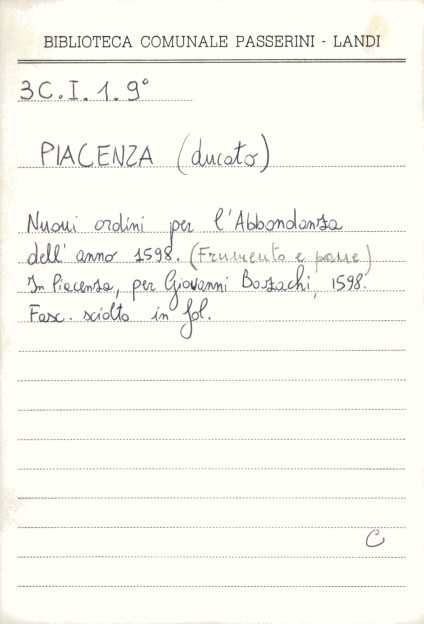 BIBLIOTECA COMUNALE PASSERINI - LANDI
3C.I.1.9°
PIACENZA (ducato)
Nuovi ordini per l'Abbondanza
dell'anno 1598. (Frumento e pane)
In Piacenza, per Giovanni Bazachi, 1598.
Fasc. sciolto in fol.
C